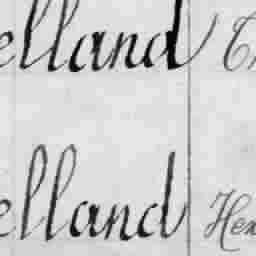 elland
elland Hen